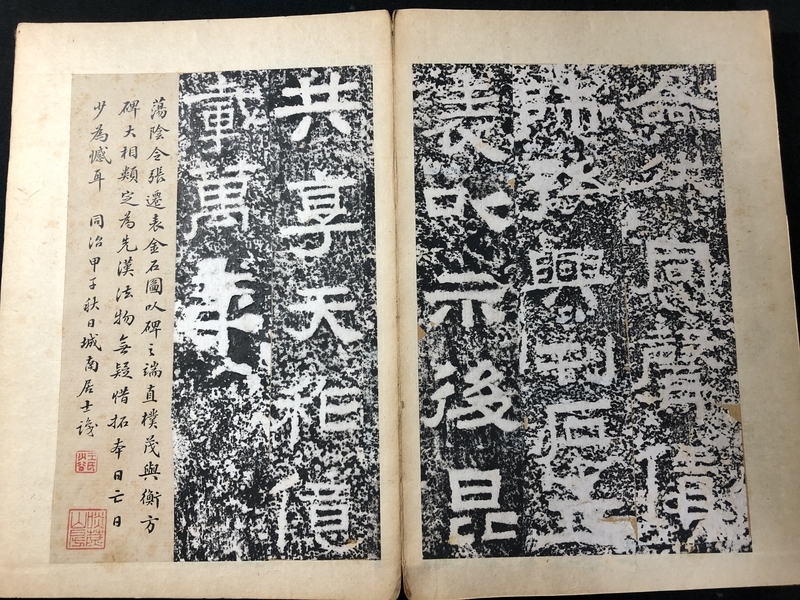 僉然同聲賃
師孫興刊石立
表以示後昆
共享天祚億
載萬年
蕩陰令張遷表金石圖以碑之端直樸茂與衡方
碑大相類定為先漢法物無疑惜拓本日亡日
少為憾耳 同治甲子秋日城南居士識